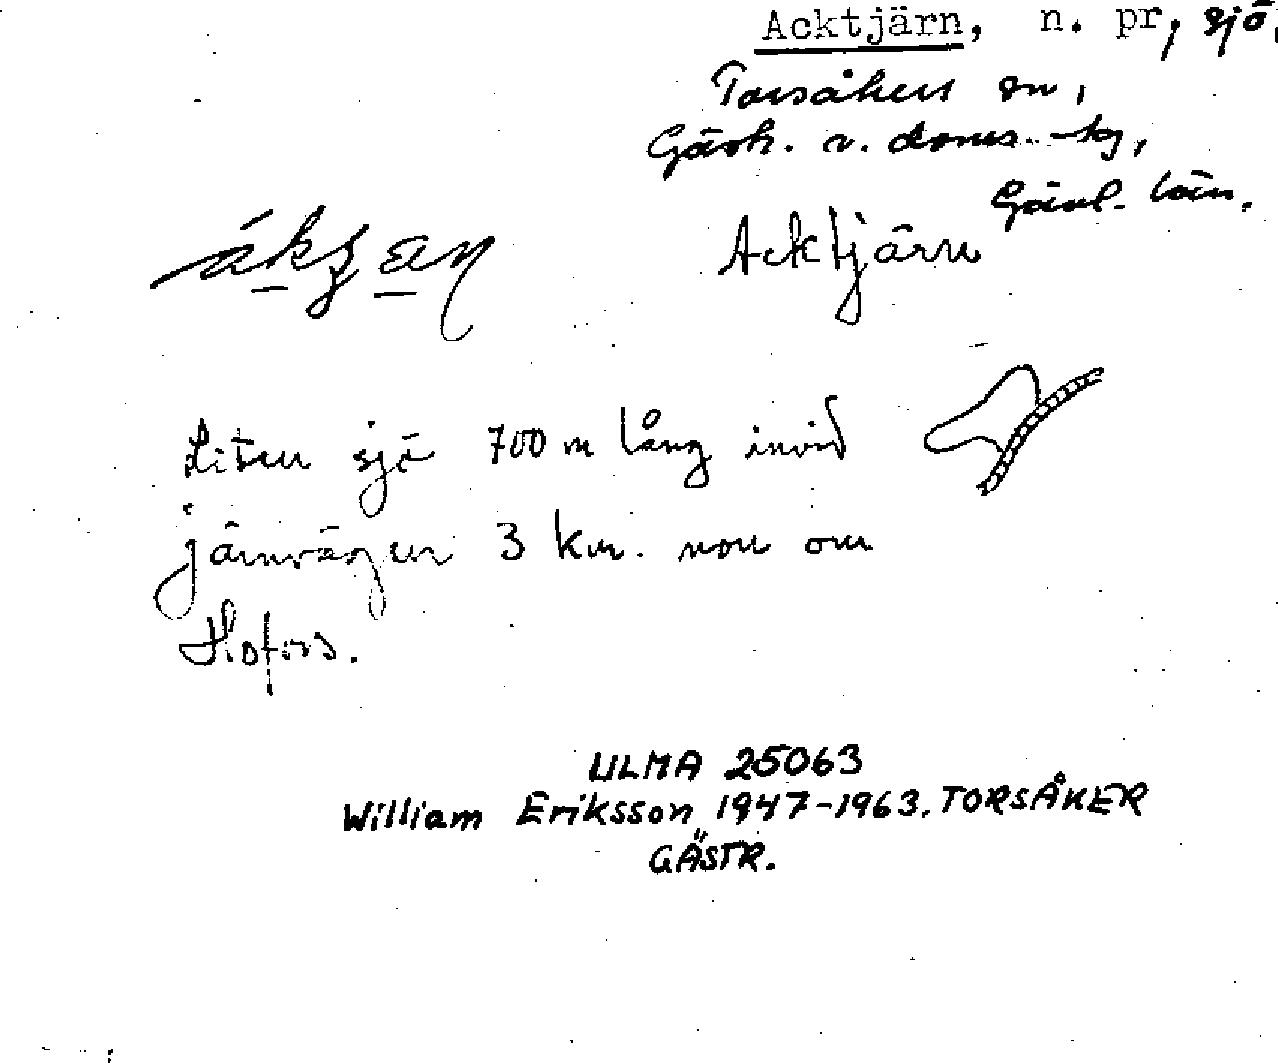 Acktjärn, n. pr, sjö,
Torsåkers sn,
Gästr. v. doms.-tg,
Gävl. län.
Acktjärn
Liten sjö 700 m lång invid
järnvägen 3 km. norr om
Hofors.
ULMA 25063
William Eriksson 1947-1963. TORSÅKER
GÄSTR.